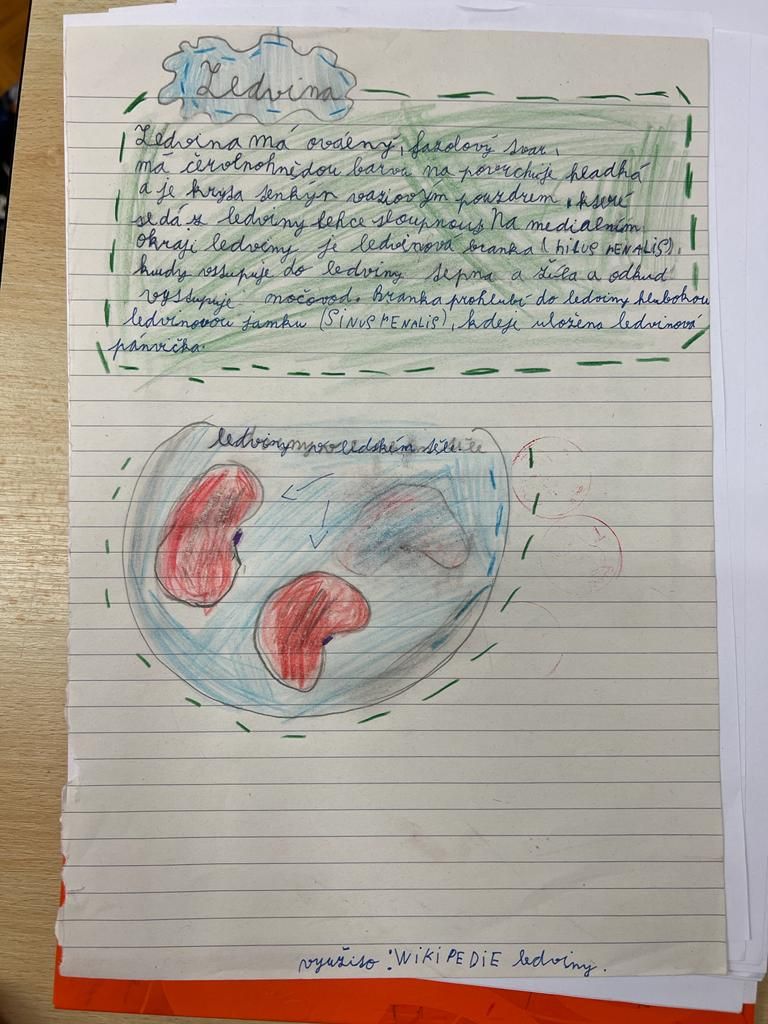 Ledvina
Ledvina má ovdéný, fazolový tvar,
má červenohnědou barvu na povrchuje hladká
a je kryta tenkým vaziovým pouzdrem, které
se dá z ledviny lehce sloupnout Na medialním
okraji ledviny je ledvinová branka (HiLUS RENALiS),
kudy vstupuje do ledviny tepna a žíla a odkud
vystupuje močovod. Branka prohlubí do ledviny hlubokou
ledvinovou jamku (SiNUS RENALiS), kdeje uložena ledvinová
pánvička.
ledviny
využito : WiKiPEDiE ledviny.